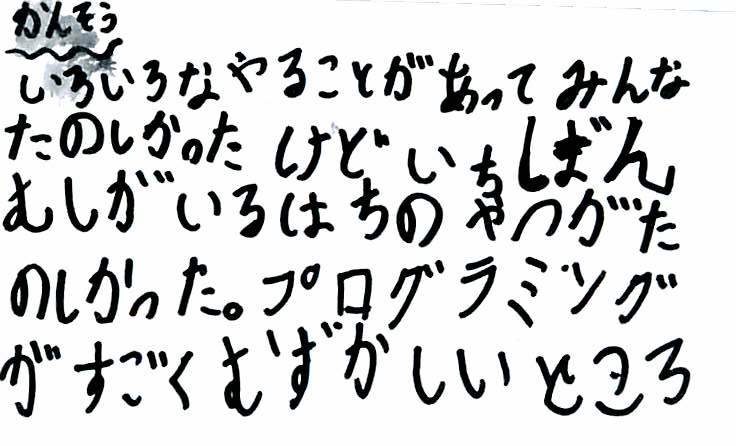 かんそう
いろいろなやることがあってみんな
たのしかったけどいちばん
むしがいるはちのやつがた
のしかった。プログラミング
がすごくむずかしいところ